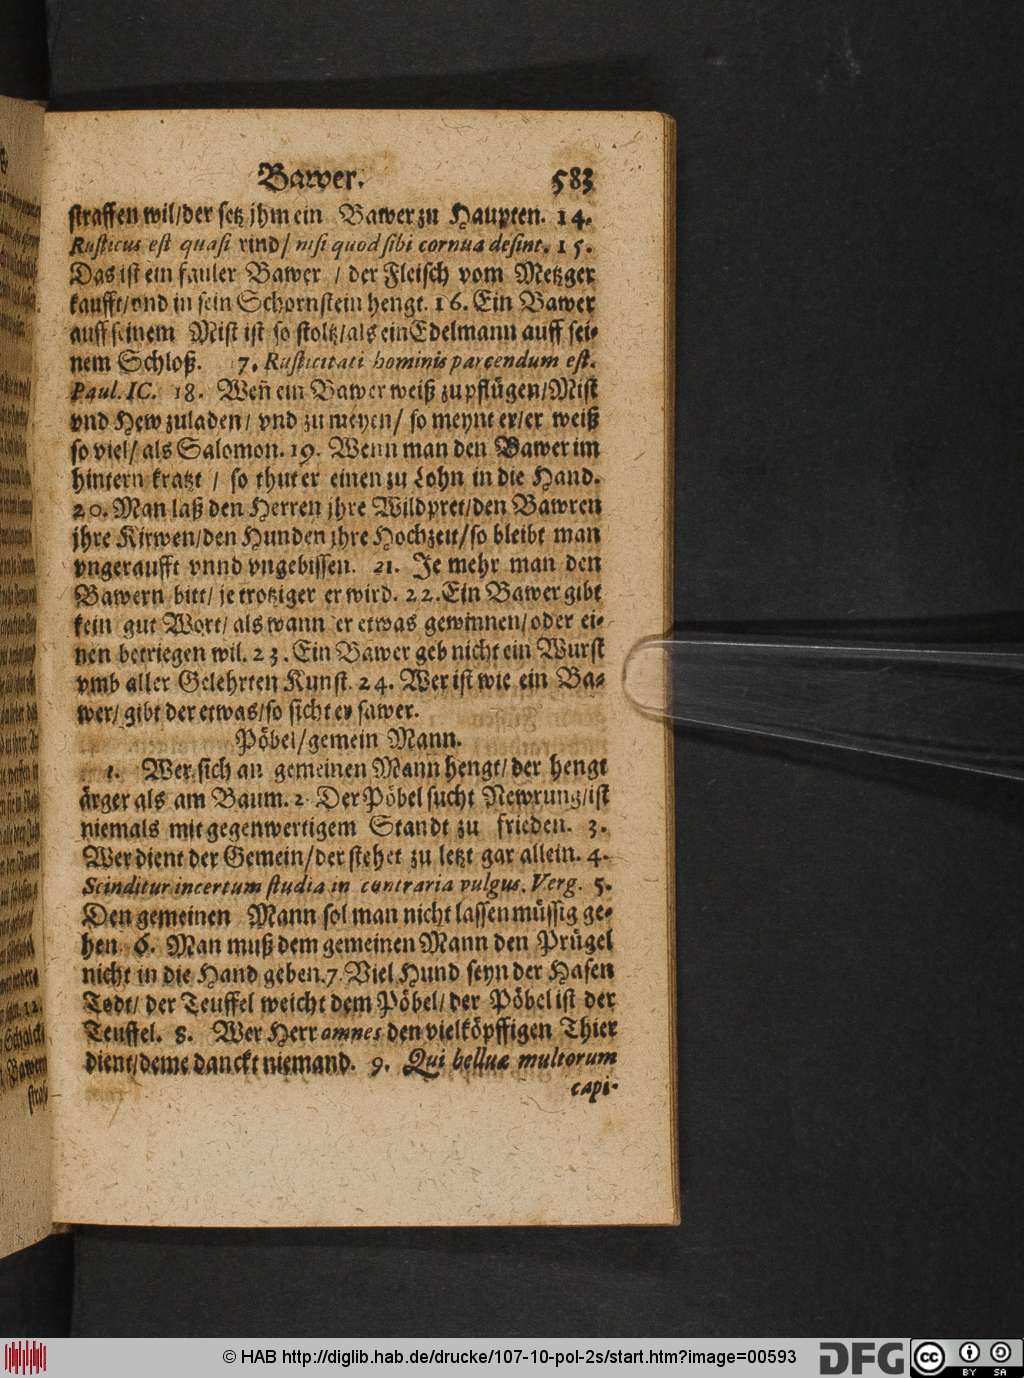 Bawer. 583
straffen wil/der setz jhm ein Bawer zu Haupten. 14.
Rusticus est quasi rind/ nisi quod sibi cornua desint. 15.
Das ist ein fauler Bawer / der Fleisch vom Metzger
kaufft/vnd in sein Schornstein hengt. 16. Ein Bawer
auff seinem Mist ist so stoltz/als ein Edelmann auff sei-
nem Schloß. 7. Rusticitati hominis parcendum est.
Paul. IC. 18. Weñ ein Bawer weiß zu pflügen/Mist
vnd Hew zuladen/ vnd zu meyen/ so meynt er/er weiß
so viel/ als Salomon. 19. Wenn man den Bawer im
hintern kratzt / so thut er einen zu Lohn in die Hand.
20. Man laß den Herren jhre Wildpret/den Bawren
jhre Kirwen/den Hunden jhre Hochzeit/so bleibt man
vngeraufft vnnd vngebissen. 21. Je mehr man den
Bawern bitt/ je trotziger er wird. 22. Ein Bawer gibt
kein gut Wort/ als wann er etwas gewinnen/oder ei-
nen betriegen wil. 23. Ein Bawer geb nicht ein Wurst
vmb aller Gelehrten Kunst. 24. Wer ist wie ein Ba-
wer/ gibt der etwas/so sicht er sawer.
Pöbel/gemein Mann.
1. Wer sich an gemeinen Mann hengt/ der hengt
ärger als am Baum. 2 Der Pöbel sucht Newrung/ist
niemals mit gegenwertigem Standt zu frieden. 3.
Wer dient der Gemein/der stehet zu letzt gar allein. 4.
Scinditur incertum studia in contraria vulgus. Verg. 5.
Den gemeinen Mann sol man nicht lassen müssig ge-
hen. 6. Man muß dem gemeinen Mann den Prügel
nicht in die Hand geben. 7. Viel Hund seyn der Hasen
Todt/ der Teuffel weicht dem Pöbel/ der Pöbel ist der
Teuffel. 8. Wer Herr amnes den vielköpffigen Thier
dient/deme danckt niemand. 9. Qui belluæ multorum
capi-
straf-
© HAB http://diglib.hab.de/drucke/107-10-pol-2s/start.htm?image=00593 DFG cc BY SA